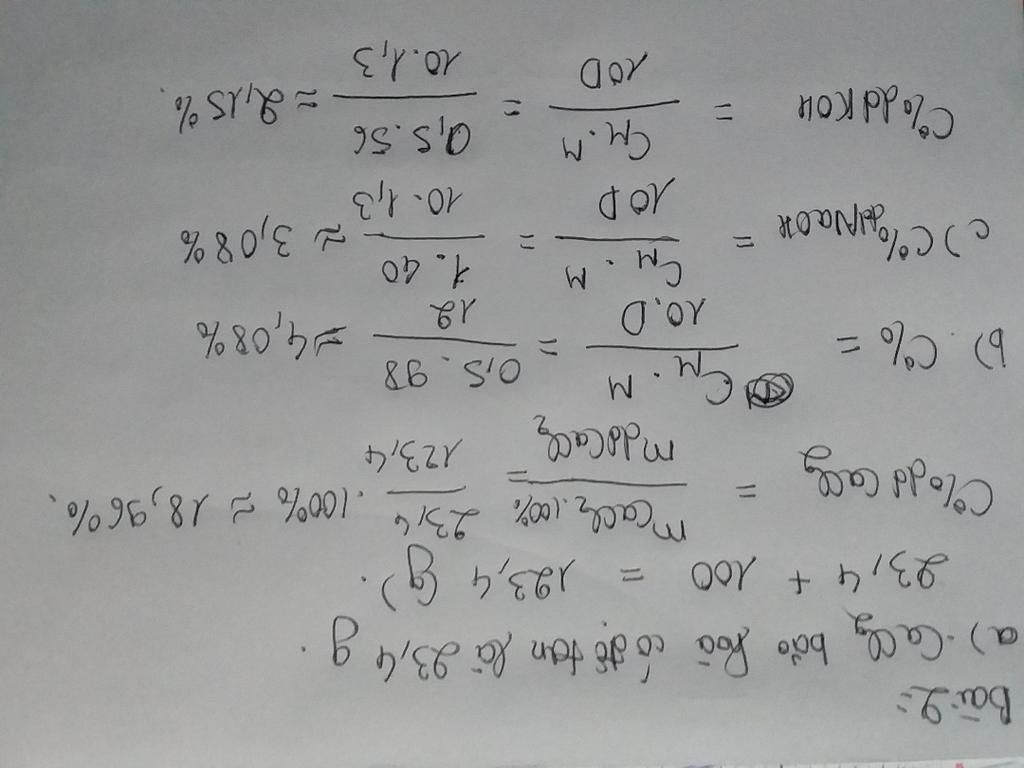 Bài 2:
a) CaCl₂ bão hoà có độ tan là 23,4 g.
23,4 + 100 = 123,4 (g).
C% dd CaCl₂ = mCaCl₂.100% / mddCaCl₂ = 23,4 / 123,4 . 100% ≈ 18,96%.
b) C% = C_M . M / 10.D = 0,5 . 98 / 12 ≈ 4,08%
c) C% ddNaOH = C_M . M / 10D = 1. 40 / 10.1,3 ≈ 3,08%
C% dd KOH = C_M . M / 10D = 0,5 . 56 / 10. 1,3 ≈ 2,15%.